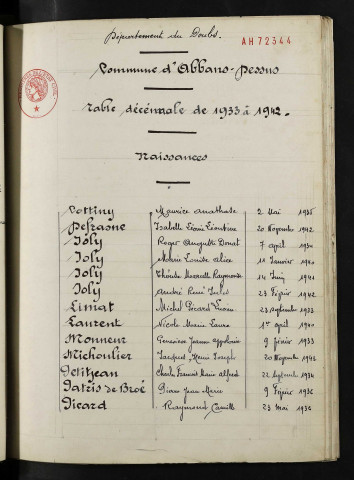 Département du Doubs.
AH 72344
Commune d'Abbans-Dessus
Table décennale de 1933 à 1942.
Naissances
Maurice 2 Mai
Defrasne Isabelle Léonie Léontine 20 Novembre 1942
Joly Roger Auguste Donat 7 avril
Joly Marie Louise Alice 11 Janvier
Joly Thérèse Marcelle Raymonde 14 Juin
Joly André René Jules 23 Février 1942
Limat Michel Gérard 23 Septembre 1933
Laurent Nicole Marie Laure 1er avril
Monneur Geneviève Jeanne Appolonie 9 février 1933
Michoulier Jacques Henri Joseph 20 Novembre
Petitjean Charles François Marie Alfred 22 Septembre 1934
Patris de Broé Jean Marie 9 Février 1936
Picard Raymond Camille 23 Mai